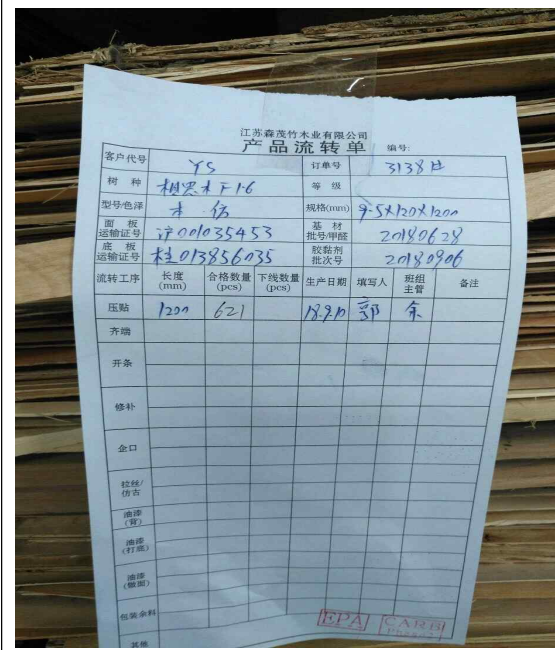 江苏森茂竹木业有限公司
产品流转单 编号:
客户代号 YS 订单号 3138
树种 相思木 F16 等级
型号/色泽 本 仿 规格(mm) 9.5X120X1200
面板运输证号 001035453 基材批号/甲醛 20180628
底板运输证号 桂013856035 胶黏剂批次号 20180906
流转工序 长度(mm) 合格数量(pcs) 下线数量(pcs) 生产日期 填写人 班组主管 备注
压贴 1200 621 18.9.10 郭 余
齐端
开条
修补
企口
拉丝/仿古
油漆(背)
油漆(打底)
油漆(做面)
包装余料
其他
EPA CARB